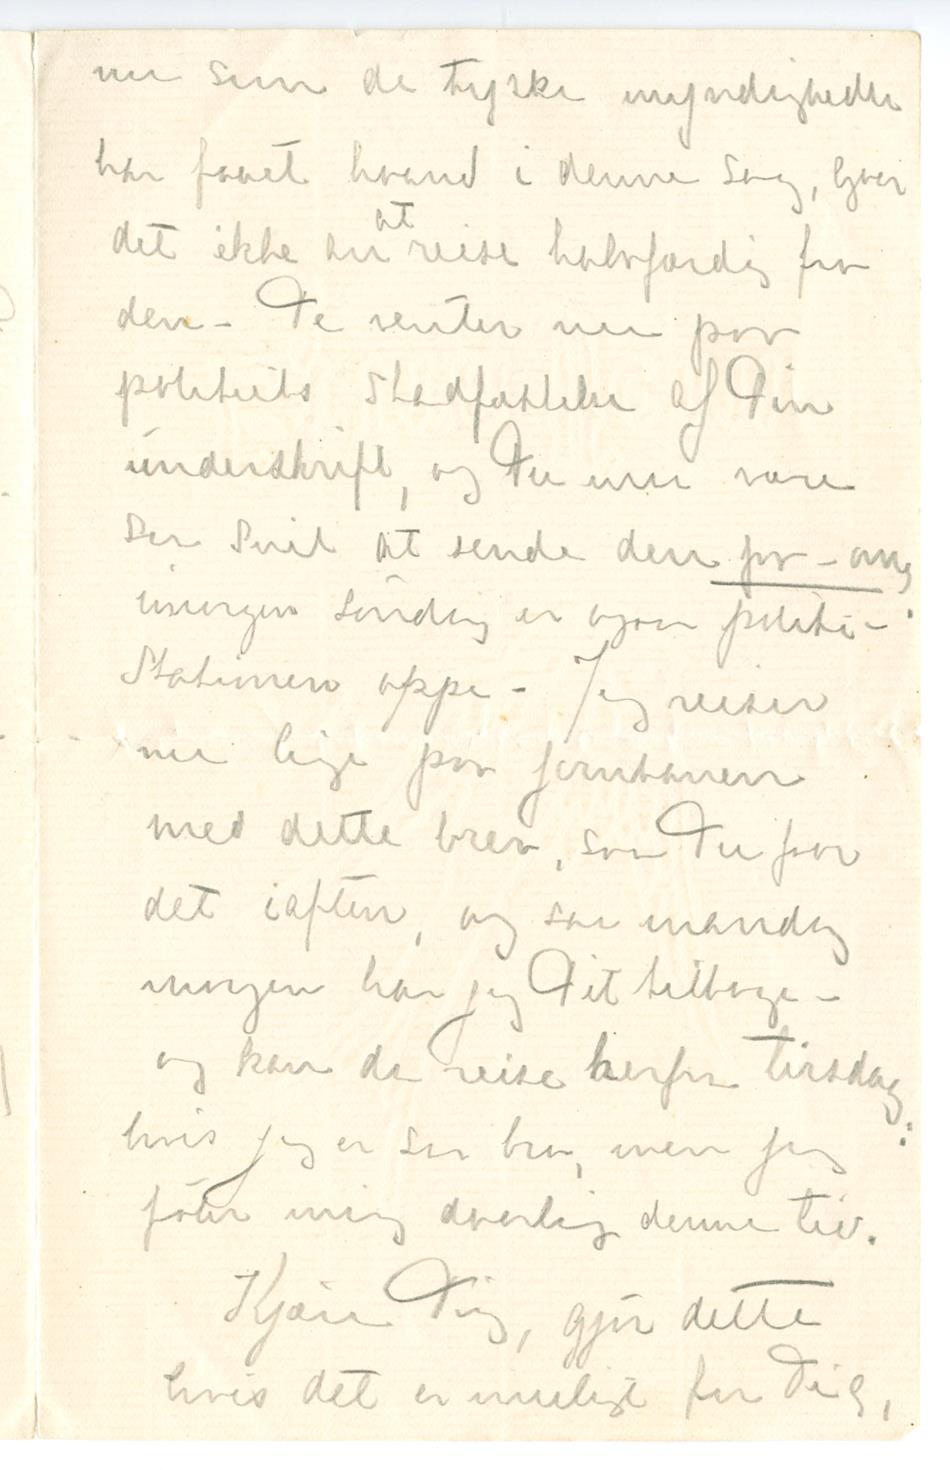 nu som de tyske myndigheder
har faaet haand i denne sag, gaar
det ikke an at reise halvfærdig fra
den - De venter nu paa
politiets Stadfæstelse af Din
underskrift, og Du maa være
saa snil at sende den paa -
imorgen söndag er ogsaa politi-
Stationen oppe - Jeg reiser
nu lige paa jernbanen
med dette brev, saa Du faar
det iaften, og saa mandag
morgen har jeg Dit tilbage -
og kan da reise herfra tirsdag
hvis jeg er saa bra, men jeg
föler mig daarlig denne tid.
Kjære Dig, gjör dette
hvis det er muligt for Dig,